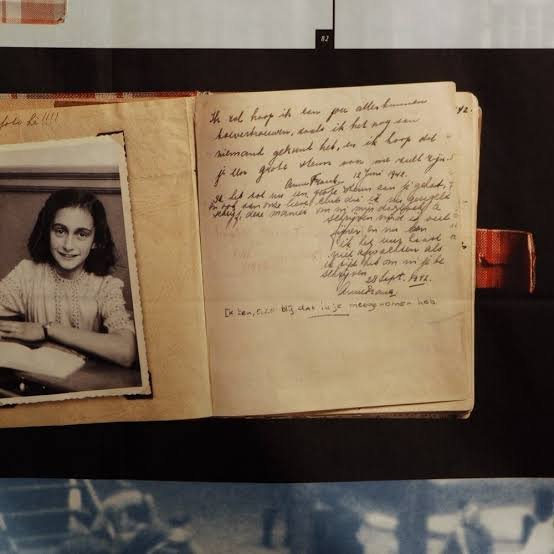 82
Ik zal hoop ik aan jou alles kunnen
toevertrouwen, zoals ik het nog aan
niemand gekund heb, en ik hoop dat
je een grote steun van me zult zijn.
Anne Frank. 12 Juni 1942.
Ik heb tot nu een grote steun aan je gehad,
en ook aan onze lieve club die ik nu geregeld
schrijf, deze manier om in mijn dagboek te
schrijven vind ik veel
fijner en nu kan
ik het uur haast
niet afwachten als
ik tijd heb om in je te
schrijven.
28 Sept. 1942.
Anne Frank
Ik ben, o, zo blij dat ik je meegenomen heb.